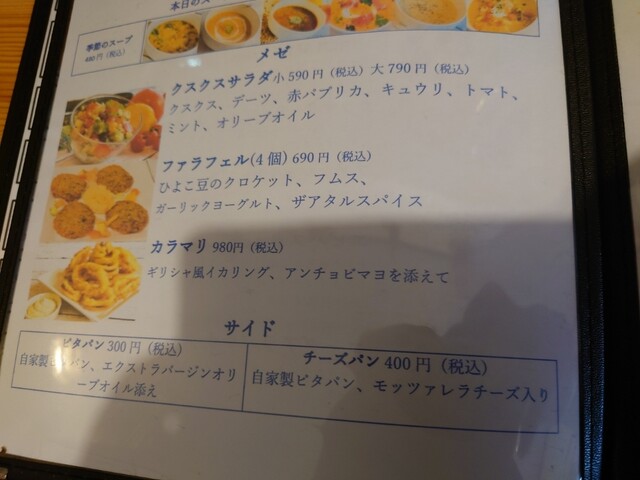 本日のス
季節のスープ
480円（税込）
メゼ
クスクスサラダ小590円（税込）大790円（税込）
クスクス、デーツ、赤パプリカ、キュウリ、トマト、
ミント、オリーブオイル
ファラフェル(4個) 690円（税込）
ひよこ豆のクロケット、フムス、
ガーリックヨーグルト、ザアタルスパイス
カラマリ 980円（税込）
ギリシャ風イカリング、アンチョビマヨを添えて
サイド
ピタパン 300円（税込）
自家製ピタパン、エクストラバージンオリ
ーブオイル添え
チーズパン 400円（税込）
自家製ピタパン、モッツァレラチーズ入り